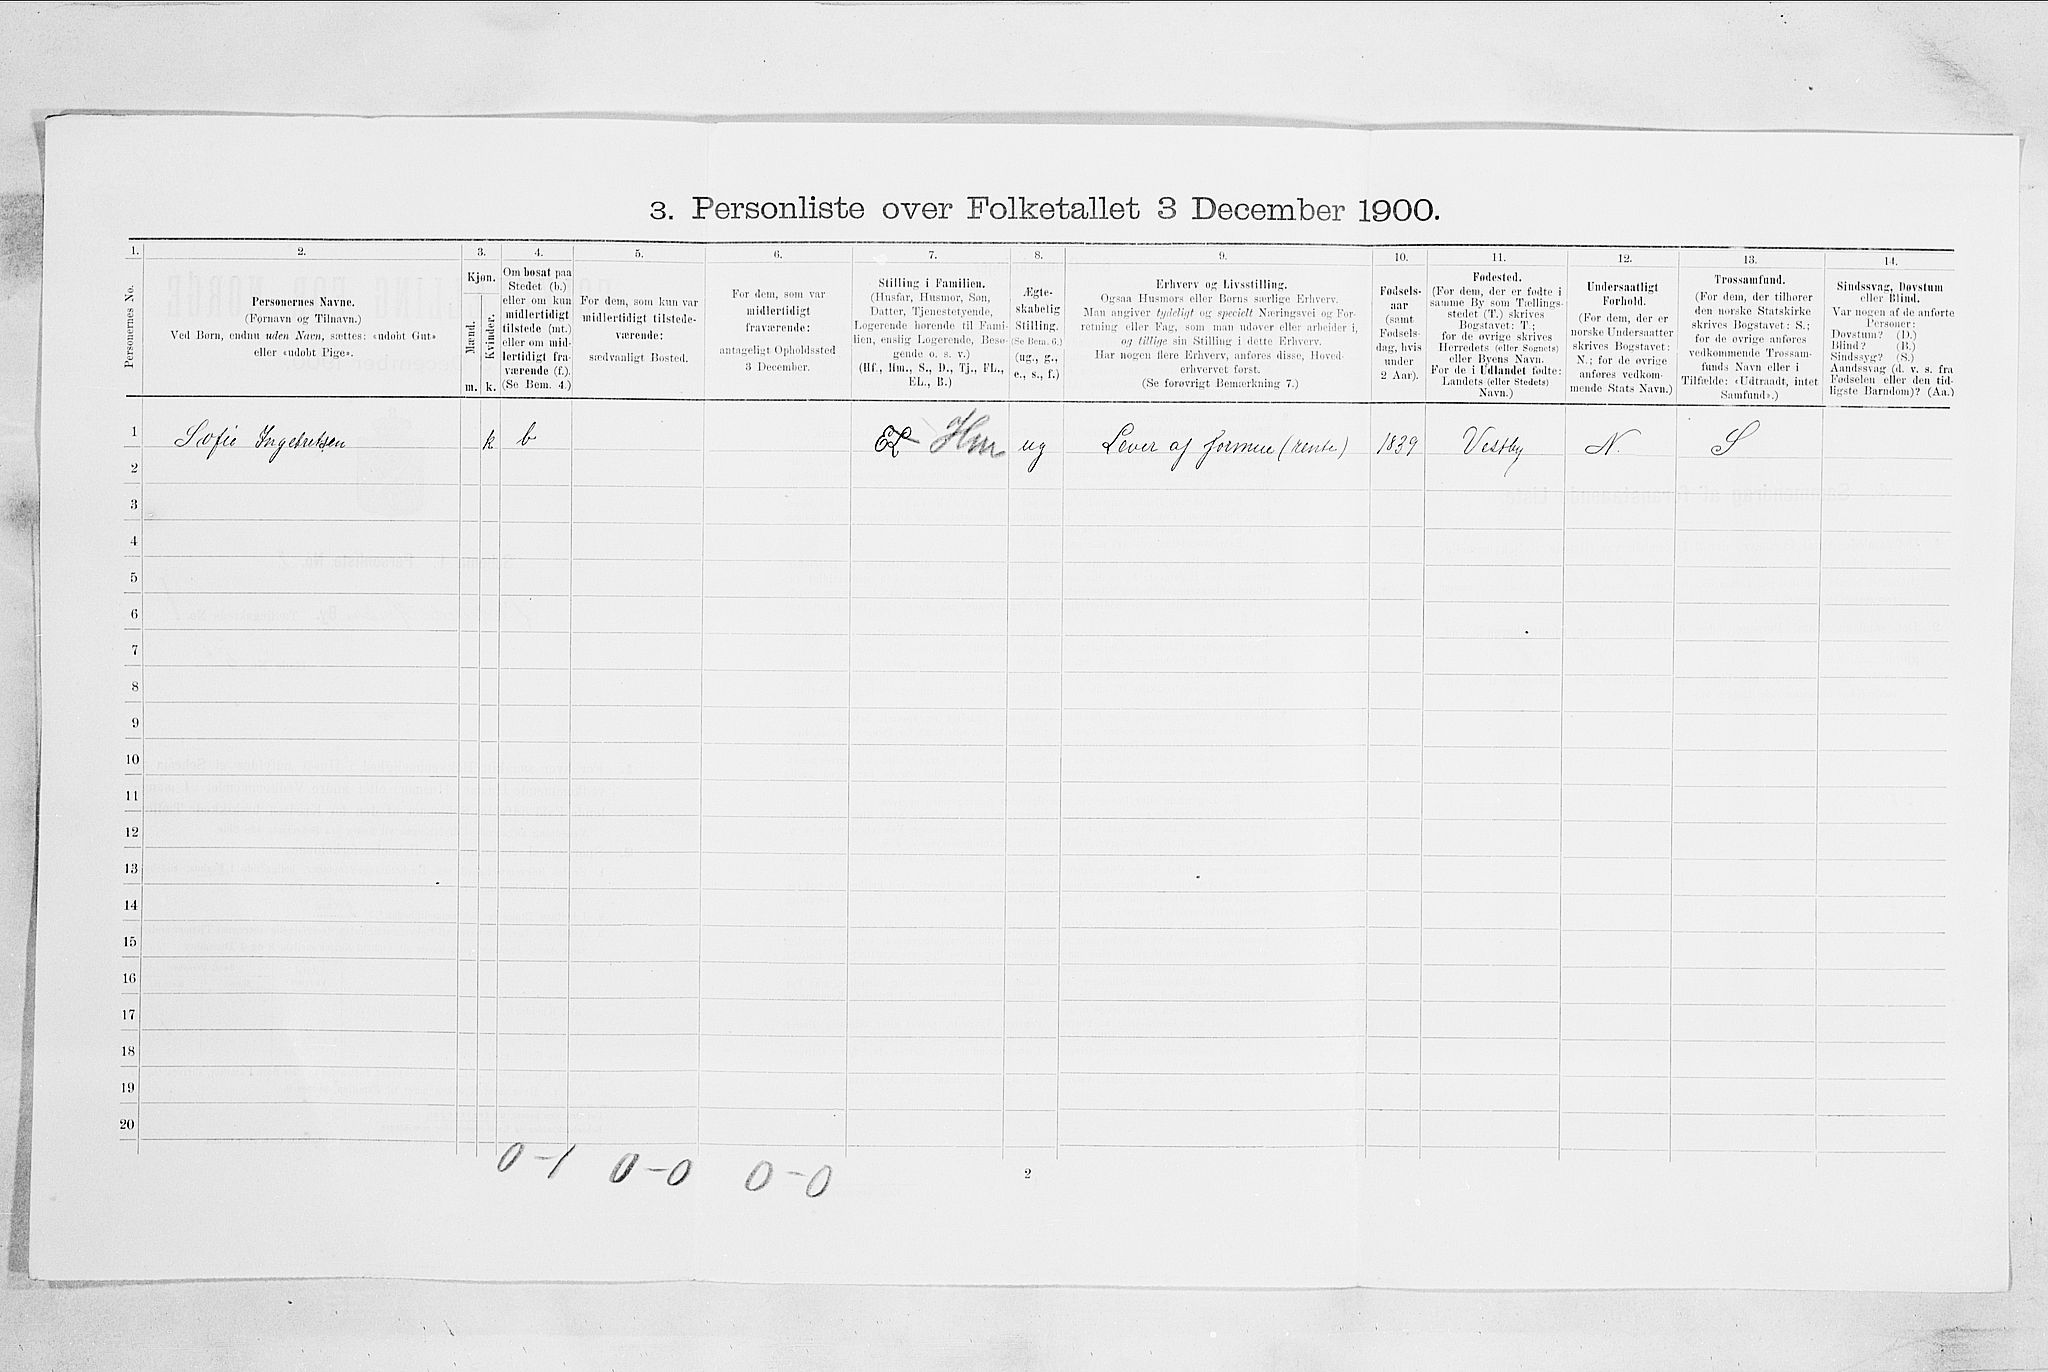 3. Personliste over Folketallet 3 December 1900.
1. 2. 3. 4. 5. 6. 7. 8. 9. 10. 11. 12. 13. 14.
Personernes No.
Personernes Navne.
(Fornavn og Tilnavn.)
Ved Børn, endnu uden Navn, sættes: «udøbt Gut»
eller «udøbt Pige».
Kjøn.
Mænd.
Kvinder.
m. k.
Om bosat paa
Stedet (b.)
eller om kun
midlertidigt
tilstede (mt.)
eller om mid-
lertidigt fra-
værende (f.).
(Se Bem. 4.)
For dem, som kun var
midlertidigt tilstede-
værende:
sædvanligt Bosted.
For dem, som var
midlertidigt
fraværende:
antageligt Opholdssted
3 December.
Stilling i Familien.
(Husfar, Husmor, Søn,
Datter, Tjenestetyende,
Logerende hørende til Fami-
lien, enslig Logerende, Besø-
gende o. s. v.)
(Hf., Hm., S., D., Tj., FL.,
EL., B.)
Ægte-
skabelig
Stilling.
(Se Bem. 6.)
(ug., g.,
e., s., f.)
Erhverv og Livsstilling.
Ogsaa Husmors eller Børns særlige Erhverv.
Man angiver tydeligt og specielt Næringsvei og For-
retning eller Fag, som man udøver eller arbeider i,
og tillige sin Stilling i dette Erhverv.
Har nogen flere Erhverv, anføres disse, Hoved-
erhvervet først.
(Se forøvrigt Bemærkning 7.)
Fødsels-
aar
(samt
Fødsels-
dag, hvis
under
2 Aar).
Fødested.
(For dem, der er fødte i
samme By som Tællings-
stedet (T.) skrives
Bogstavet: T.;
for de øvrige skrives
Herredets (eller Sognets)
eller Byens Navn.
For de i Udlandet fødte:
Landets (eller Stedets)
Navn.)
Undersaatligt
Forhold.
(For dem, der er
norske Undersaatter
skrives Bogstavet:
N.; for de øvrige
anføres vedkom-
mende Stats Navn.)
Trossamfund.
(For dem, der tilhører
den norske Statskirke
skrives Bogstavet: S.;
for de øvrige anføres
vedkommende Trossam-
funds Navn eller i
Tilfælde: «Udtraadt, intet
Samfund».)
Sindssvag, Døvstum
eller Blind.
Var nogen af de anførte
Personer:
Døvstum? (D.)
Blind? (B.)
Sindssyg? (S.)
Aandssvag (d. v. s. fra
Fødselen eller den tid-
ligste Barndom)? (Aa.)
1 Sofie Ingebretsen k b EL Hm ug Lever af formue (rente) 1839 Vestby N. S
2
3
4
5
6
7
8
9
10
11
12
13
14
15
16
17
18
19
20
0-1 0-0 0-0
2